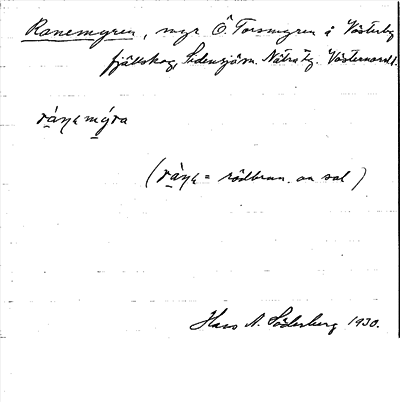 Ranemyren, myr Ö. Torsmyren å Västerby
fjällskog, Sidensjö sn. Nätra tg. Västernorrl.
ráŋɛmýra
(ràŋɛ = rödbrun. om sal)
Hans A. Söderberg 1930.